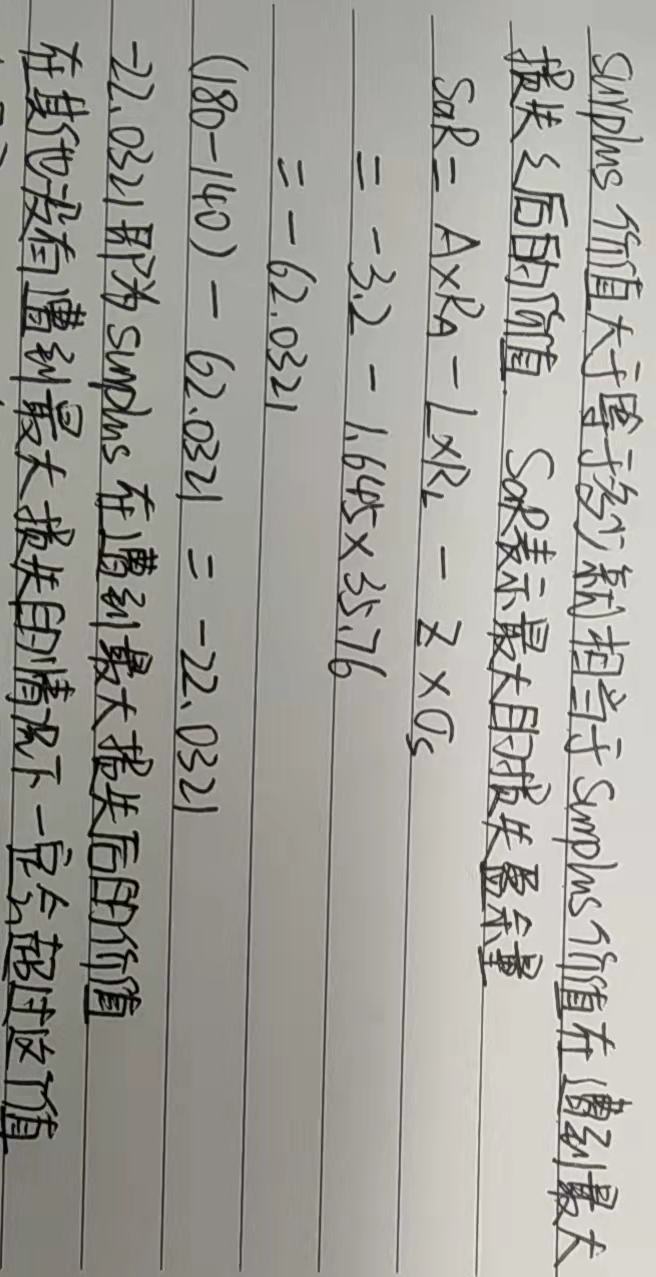 surplus价值大于等于多少,就相当于surplus价值在遭到最大
损失之后的价值. SaR表示最大的损失盈余量
SaR = A×RA - L×RL - Z×σs
= -3.2 - 1.645×35.76
= -62.0321
(180-140) - 62.0321 = -22.0321
-22.0321即为surplus在遭到最大损失后的价值
在其他没有遭到最大损失的情况下一定会超过这个值